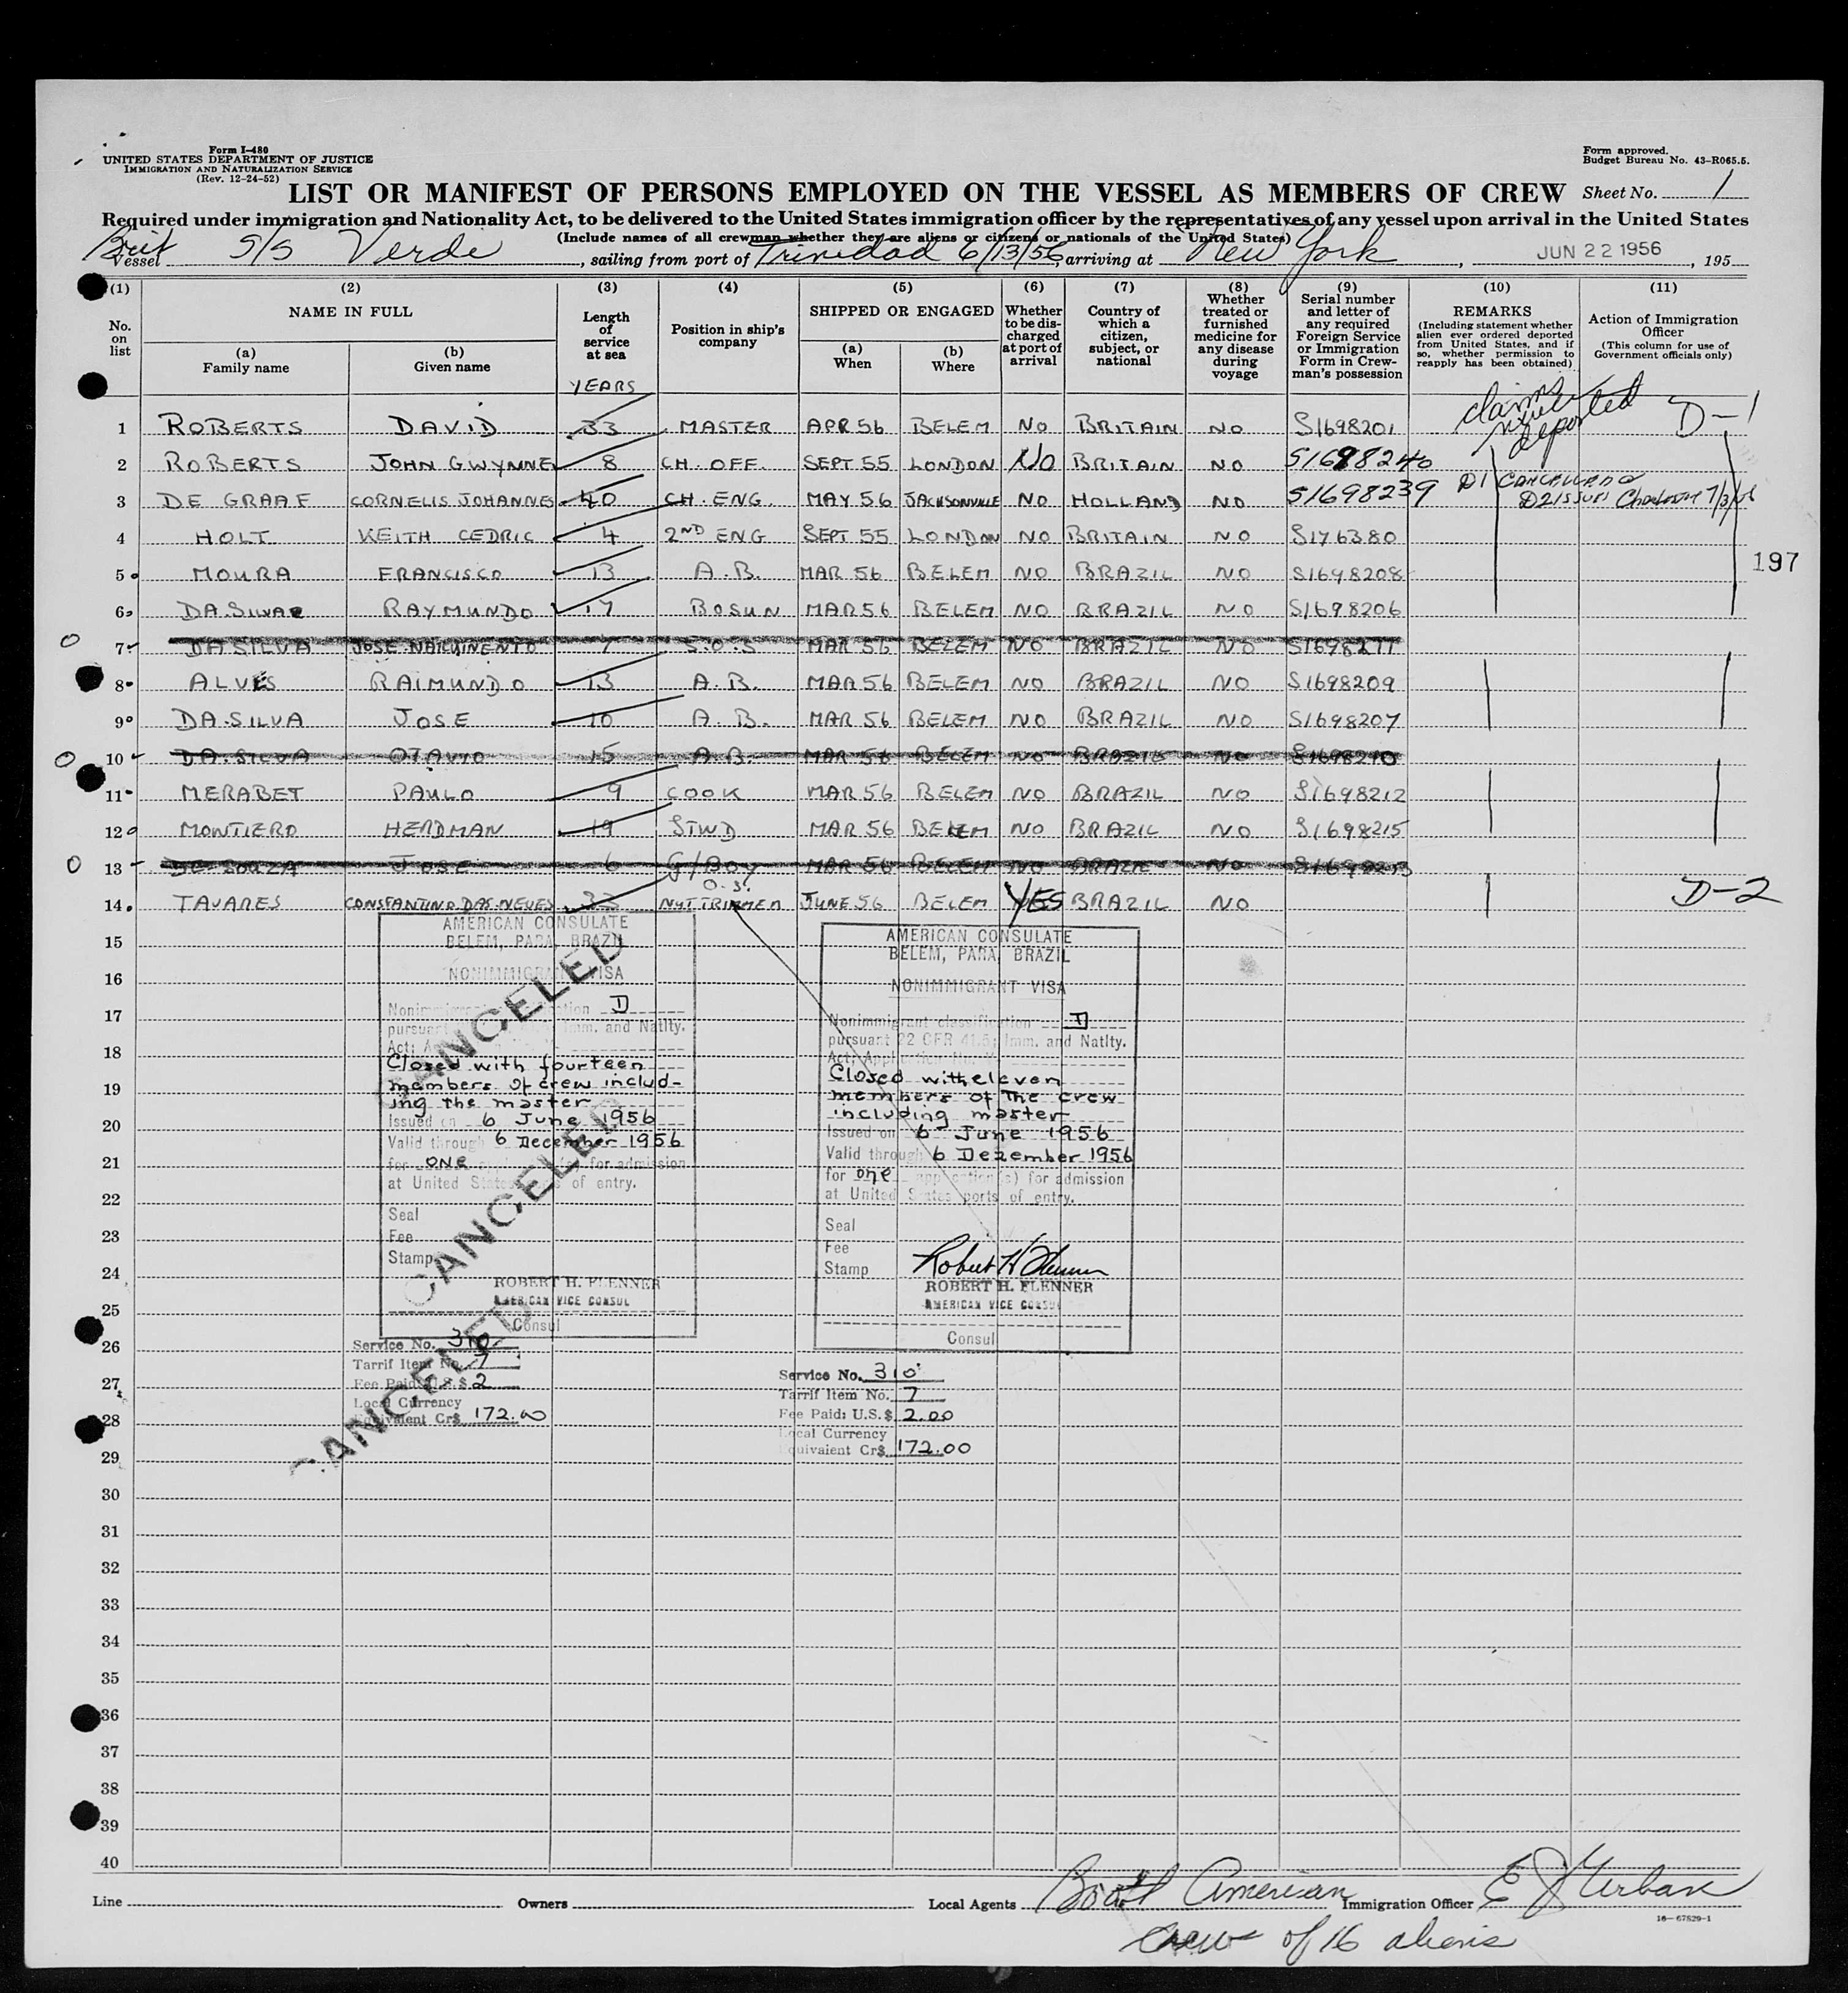 Form I-480
UNITED STATES DEPARTMENT OF JUSTICE
IMMIGRATION AND NATURALIZATION SERVICE
(Rev. 12-24-52)
Form approved.
Budget Bureau No. 43-R065.5.
LIST OR MANIFEST OF PERSONS EMPLOYED ON THE VESSEL AS MEMBERS OF CREW Sheet No. 1
Required under immigration and Nationality Act, to be delivered to the United States immigration officer by the representatives of any vessel upon arrival in the United States
(Include names of all crewman whether they are aliens or citizens or nationals of the United States)
Brit Vessel S/S Verde, sailing from port of Trinidad 6/13/56, arriving at New York, JUN 22 1956, 195
(1) (2) (3) (4) (5) (6) (7) (8) (9) (10) (11)
No. on list
NAME IN FULL
(a) Family name
(b) Given name
Length of service at sea
YEARS
Position in ship's company
SHIPPED OR ENGAGED
(a) When
(b) Where
Whether to be discharged at port of arrival
Country of which a citizen, subject, or national
Whether treated or furnished medicine for any disease during voyage
Serial number and letter of any required Foreign Service or Immigration Form in Crewman's possession
REMARKS
(Including statement whether alien ever ordered deported from United States, and if so, whether permission to reapply has been obtained)
Action of Immigration Officer
(This column for use of Government officials only)
claims never deported
1 ROBERTS DAVID 33 MASTER APR 56 BELEM NO BRITAIN NO S1698201 D-1
2 ROBERTS JOHN GWYNNE 8 CH. OFF. SEPT 55 LONDON NO BRITAIN NO S1698240
3 DE GRAAF CORNELIS JOHANNES 40 CH. ENG. MAY 56 JACKSONVILLE NO HOLLAND NO S1698239 D1 CANCELLED
D2 ISSUED Charleston 7/3/56
4 HOLT KEITH CEDRIC 4 2ND ENG SEPT 55 LONDON NO BRITAIN NO S176380
5 MOURA FRANCISCO 13 A.B. MAR 56 BELEM NO BRAZIL NO S1698208
197
6 DA SILVA RAYMUNDO 17 BOSUN MAR 56 BELEM NO BRAZIL NO S1698206
7 DA SILVA JOSE 7 S.O.S MAR 56 BELEM NO BRAZIL NO S1698211
8 ALVES RAIMUNDO 13 A.B. MAR 56 BELEM NO BRAZIL NO S1698209
9 DA SILVA JOSE 10 A.B. MAR 56 BELEM NO BRAZIL NO S1698207
10 DA SILVA OTAVIO 15 A.B. MAR 56 BELEM NO BRAZIL NO S1698210
11 MERABET PAULO 9 COOK MAR 56 BELEM NO BRAZIL NO S1698212
12 MONTIERO HERDMAN 19 STWD MAR 56 BELEM NO BRAZIL NO S1698215
13 DE SOUZA JOSE 6 G/BOY MAR 56 BELEM NO BRAZIL NO S1698213
O.S.
14 TAVARES CONSTANTINO DAS NEVES NUT TRIMMER JUNE 56 BELEM YES BRAZIL NO D-2
15
16
17
18
19
20
21
22
23
24
25
26
27
28
29
30
31
32
33
34
35
36
37
38
39
40
AMERICAN CONSULATE
BELEM, PARA, BRAZIL
NONIMMIGRANT VISA
Nonimmigrant classification D
pursuant Imm. and Natlty.
Act;
Closed with fourteen
members of crew includ-
ing the master
Issued on 6 June 1956
Valid through 6 December 1956
for one for admission
at United States of entry.
Seal
Fee
Stamp
ROBERT H. FLENNER
AMERICAN VICE CONSUL
Consul
Service No. 310
Tarrif Item No. 7
Fee Paid: U.S. $ 2
Local Currency
Equivalent Cr$ 172.00
CANCELED
CANCELED
CANCELED
AMERICAN CONSULATE
BELEM, PARA, BRAZIL
NONIMMIGRANT VISA
Nonimmigrant classification D
pursuant 22 CFR 41.5; Imm. and Natlty.
Act; Application No. V
Closed with eleven
members of the crew
including master
Issued on 6 June 1956
Valid through 6 Dezember 1956
for one application(s) for admission
at United States ports of entry.
Seal
Fee
Stamp
Robert H. Flenner
ROBERT H. FLENNER
AMERICAN VICE CONSUL
Consul
Service No. 310
Tarrif Item No. 7
Fee Paid: U.S. $ 2.00
Local Currency
Equivalent Cr$ 172.00
Line Owners Local Agents Booth American Immigration Officer E J Urban
16-67529-1
crew of 16 aliens